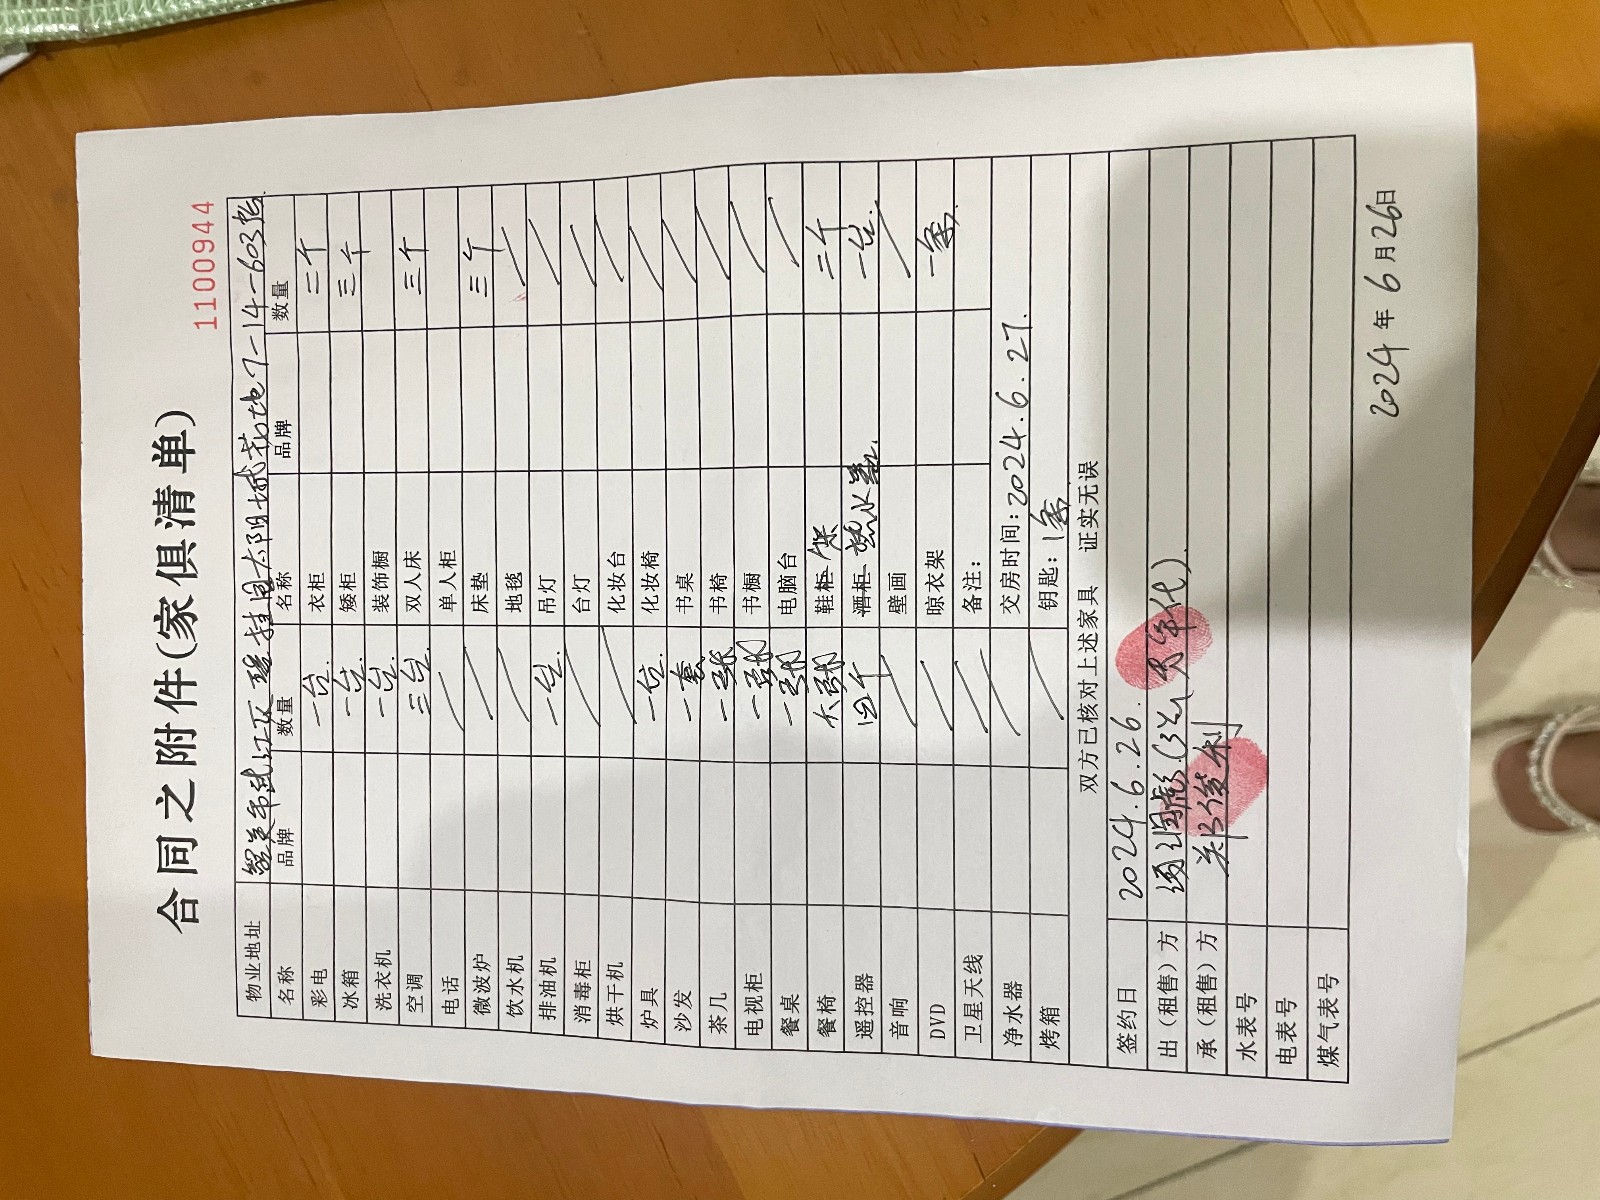 合同之附件(家俱清单)
1100944
物业地址 韶关市武江区碧桂园太阳城芳地7-14-603铺
名称 品牌 数量 名称 品牌 数量
彩电 一台. 衣柜 二个
冰箱 一台. 矮柜 三个
洗衣机 一台. 装饰橱
空调 三台. 双人床 三个
电话 单人柜
微波炉 床垫 三个
饮水机 地毯
排油机 一台. 吊灯
消毒柜 台灯
烘干机 化妆台
炉具 一台. 化妆椅
沙发 一套 书桌
茶几 一张 书椅
电视柜 一张 书橱
餐桌 一张 电脑台
餐椅 六张 鞋柜 架 二个
遥控器 四个 酒柜 热水器. 一台.
音响 壁画
DVD 晾衣架 一条.
卫星天线 备注:
净水器 交房时间: 2024.6.27.
烤箱 钥匙: 1条
双方已核对上述家具 证实无误
签约日 2024.6.26.
出（租售）方 代).
承（租售）方 郑俊利
水表号
电表号
煤气表号
2024年6月26日